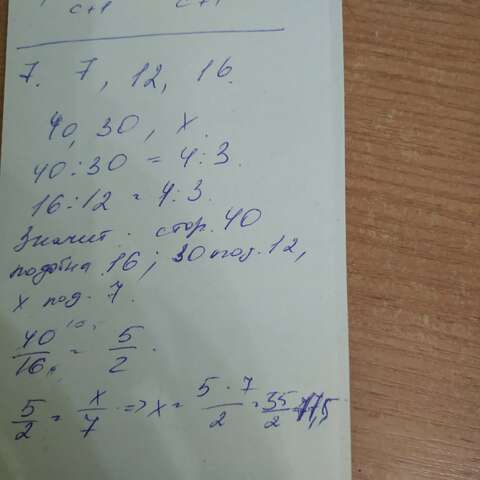 c+1 c+1
7. 7, 12, 16.
40, 30, x.
40:30 = 4:3.
16:12 = 4:3.
Значит: стор. 40
подобна 16; 30 под. 12,
x под. 7.
40/16 = 5/2.
5/2 = x/7 => x = 5·7/2 = 35/2 = 17,5